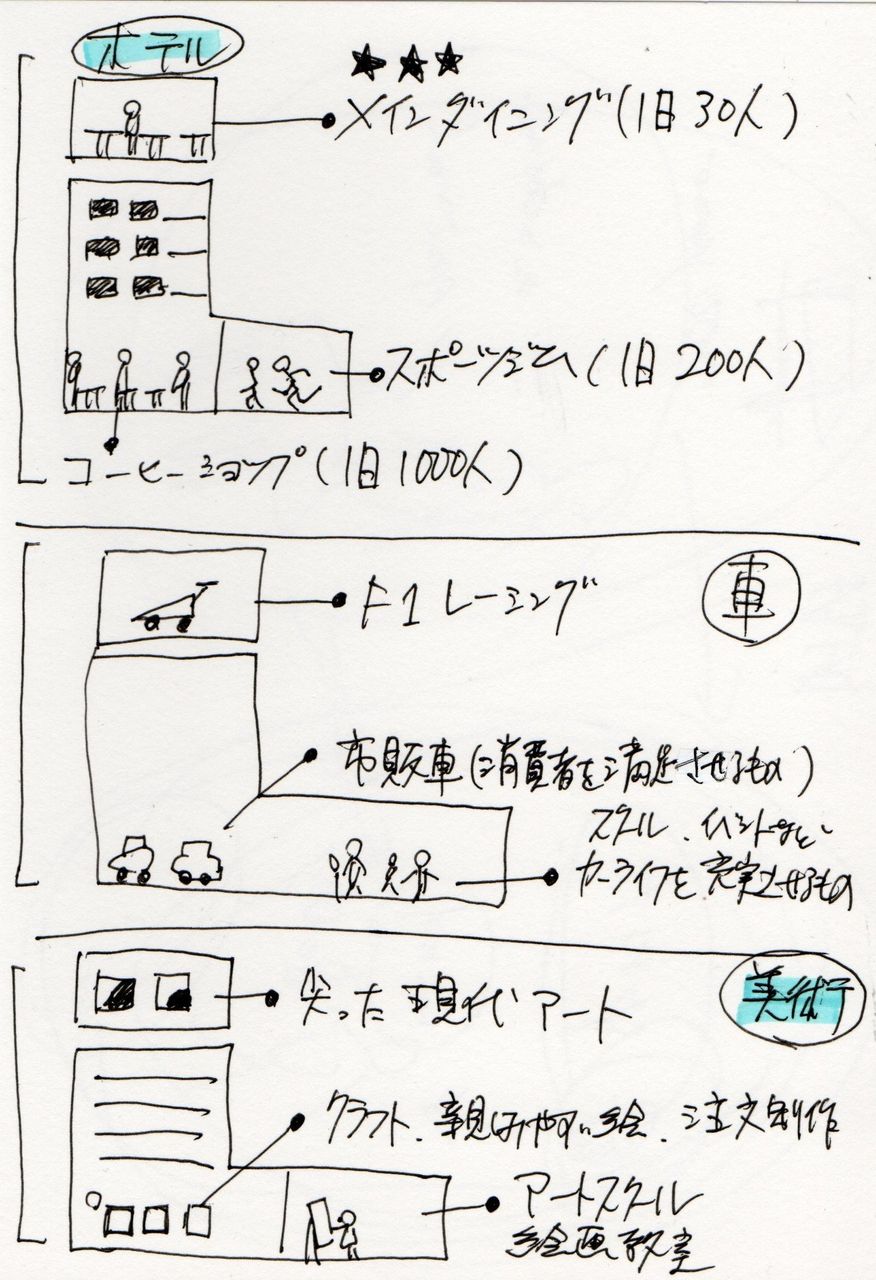 ホテル
★★★
メインダイニング(1日30人)
スポーツジム(1日200人)
コーヒーショップ(1日1000人)
車
F1レーシング
市販車(消費者を満足させるもの)
スクール、イベントなど、
カーライフを充実させるもの
美術
尖った現代アート
クラフト、親しみやすい絵、注文制作
アートスクール
絵画教室